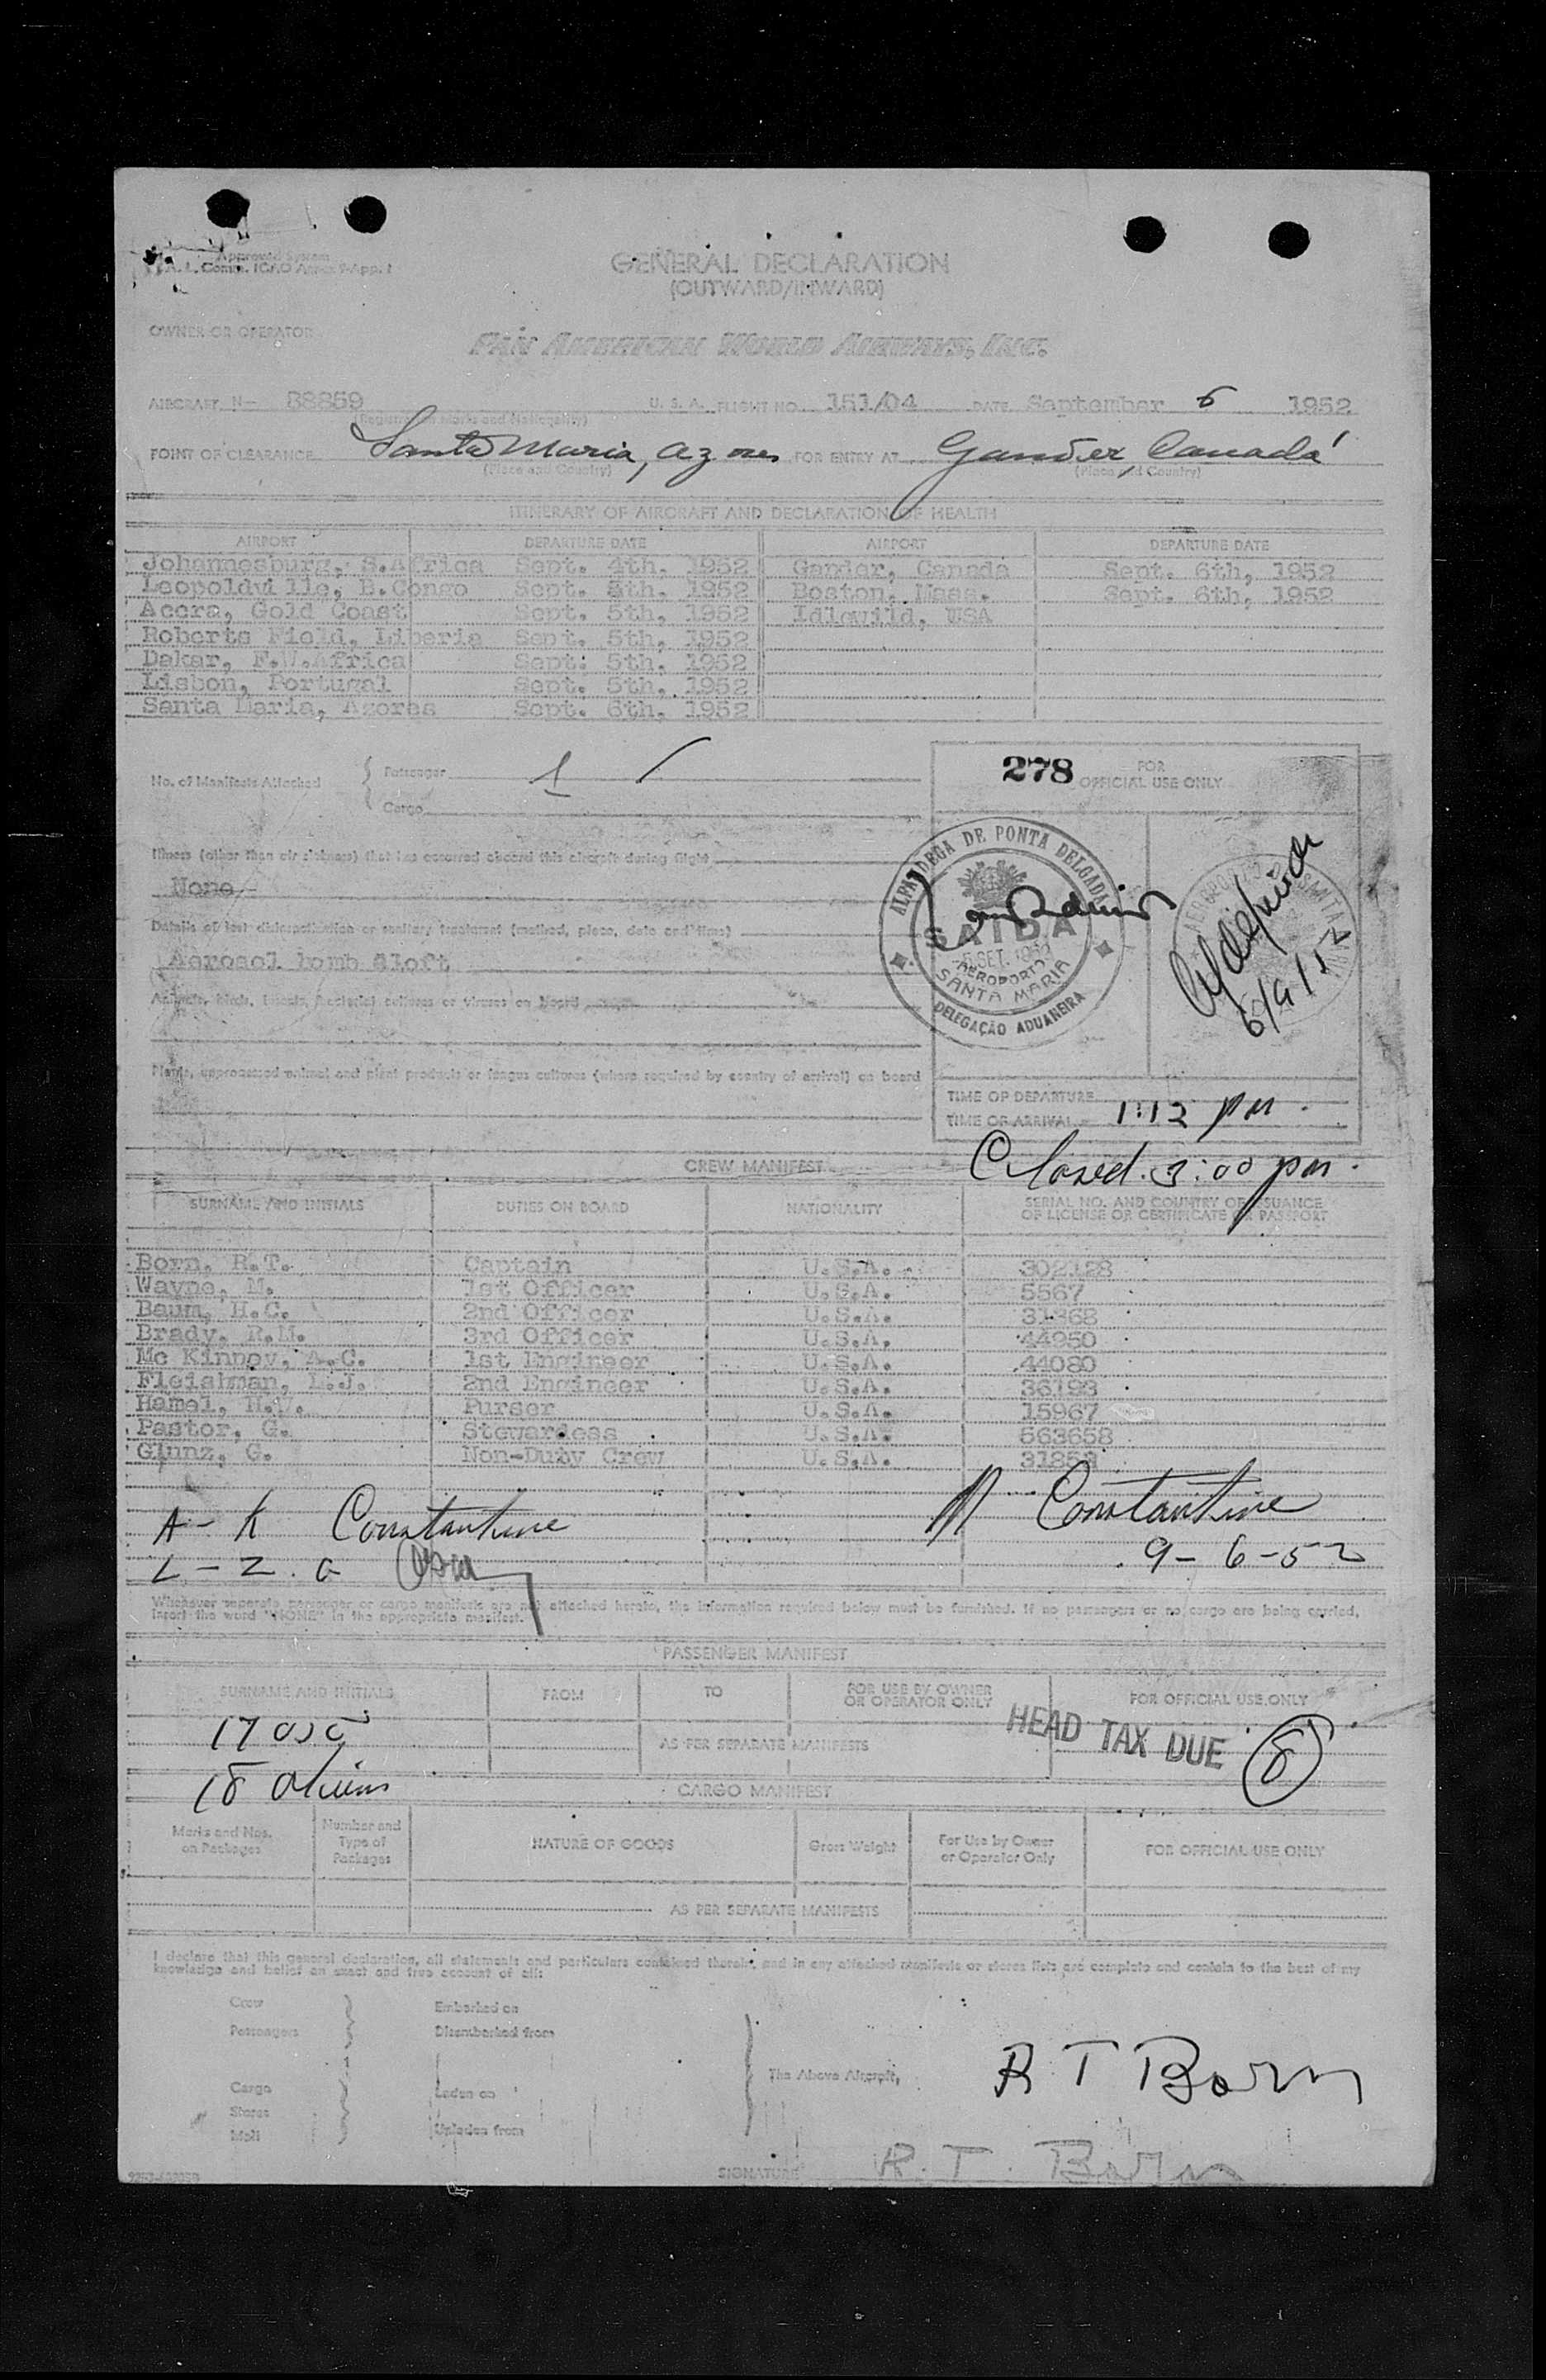 Approved System
A.L. Comm. ICAO Annex 9-App. 1
GENERAL DECLARATION
(OUTWARD/INWARD)
OWNER OR OPERATOR
PAN AMERICAN WORLD AIRWAYS, INC.
AIRCRAFT N- 88859 U. S. A. FLIGHT NO. 151/04 DATE September 6 1952
(Registration Marks and Nationality)
POINT OF CLEARANCE Santa Maria, Azores FOR ENTRY AT Gander, Canadá
(Place and Country) (Place and Country)
ITINERARY OF AIRCRAFT AND DECLARATION OF HEALTH
AIRPORT DEPARTURE DATE AIRPORT DEPARTURE DATE
Johannesburg, S.Africa Sept. 4th, 1952 Gander, Canada Sept. 6th, 1952
Leopoldville, B.Congo Sept. 5th, 1952 Boston, Mass. Sept. 6th, 1952
Accra, Gold Coast Sept. 5th, 1952 Idlewild, USA
Roberts Field, Liberia Sept. 5th, 1952
Dakar, F.W.Africa Sept. 5th, 1952
Lisbon, Portugal Sept. 5th, 1952
Santa Maria, Azores Sept. 6th, 1952
No. of Manifests Attached
Passenger 1
Cargo
278
FOR
OFFICIAL USE ONLY
Illness (other than air sickness) that has occurred aboard this aircraft during flight
None
Details of last disinsectization or sanitary treatment (method, place, date and time)
Aerosol bomb aloft
Animals, birds, insects, bacterial cultures or viruses on board
Plants, unprocessed animal and plant products or fungus cultures (where required by country of arrival) on board
ALFANDEGA DE PONTA DELGADA
SAIDA
SET. 1952
AEROPORTO
SANTA MARIA
DELEGAÇÃO ADUANEIRA
AEROPORTO DE SANTA
6/9/52
TIME OF DEPARTURE
TIME OF ARRIVAL 1:12 pm.
Closed. 3:00 pm.
CREW MANIFEST
SURNAME AND INITIALS DUTIES ON BOARD NATIONALITY SERIAL NO. AND COUNTRY OF ISSUANCE
OF LICENSE OR CERTIFICATE OR PASSPORT
Born, R.T. Captain U.S.A. 302128
Wayne, M. 1st Officer U.S.A. 5567
Baum, H.C. 2nd Officer U.S.A. 31368
Brady, R.M. 3rd Officer U.S.A. 44950
Mc Kinney, A.C. 1st Engineer U.S.A. 44080
Fleishman, L.J. 2nd Engineer U.S.A. 36193
Hamel, H.W. Purser U.S.A. 15967
Pastor, G. Stewardess U.S.A. 563658
Glunz, G. Non-Duty Crew U.S.A.
A - K Constantine
Constantine
L - Z. G
9-6-52
Whenever separate passenger or cargo manifests are not attached hereto, the information required below must be furnished. If no passengers or no cargo are being carried,
insert the word "NONE" in the appropriate manifest.
PASSENGER MANIFEST
SURNAME AND INITIALS FROM TO FOR USE BY OWNER
OR OPERATOR ONLY FOR OFFICIAL USE ONLY
17
AS PER SEPARATE MANIFESTS
HEAD TAX DUE 8
18 Aliens
CARGO MANIFEST
Marks and Nos.
on Packages
Number and
Type of
Packages
NATURE OF GOODS
Gross Weight
For Use by Owner
or Operator Only
FOR OFFICIAL USE ONLY
AS PER SEPARATE MANIFESTS
I declare that this general declaration, all statements and particulars contained therein, and in any attached manifests or stores lists are complete and contain to the best of my
knowledge and belief an exact and true account of all:
Crew Embarked on
Passengers Disembarked from
The Above Aircraft,
R T Born
Cargo Laden on
Stores
Mail Unladen from
SIGNATURE R. T. Born